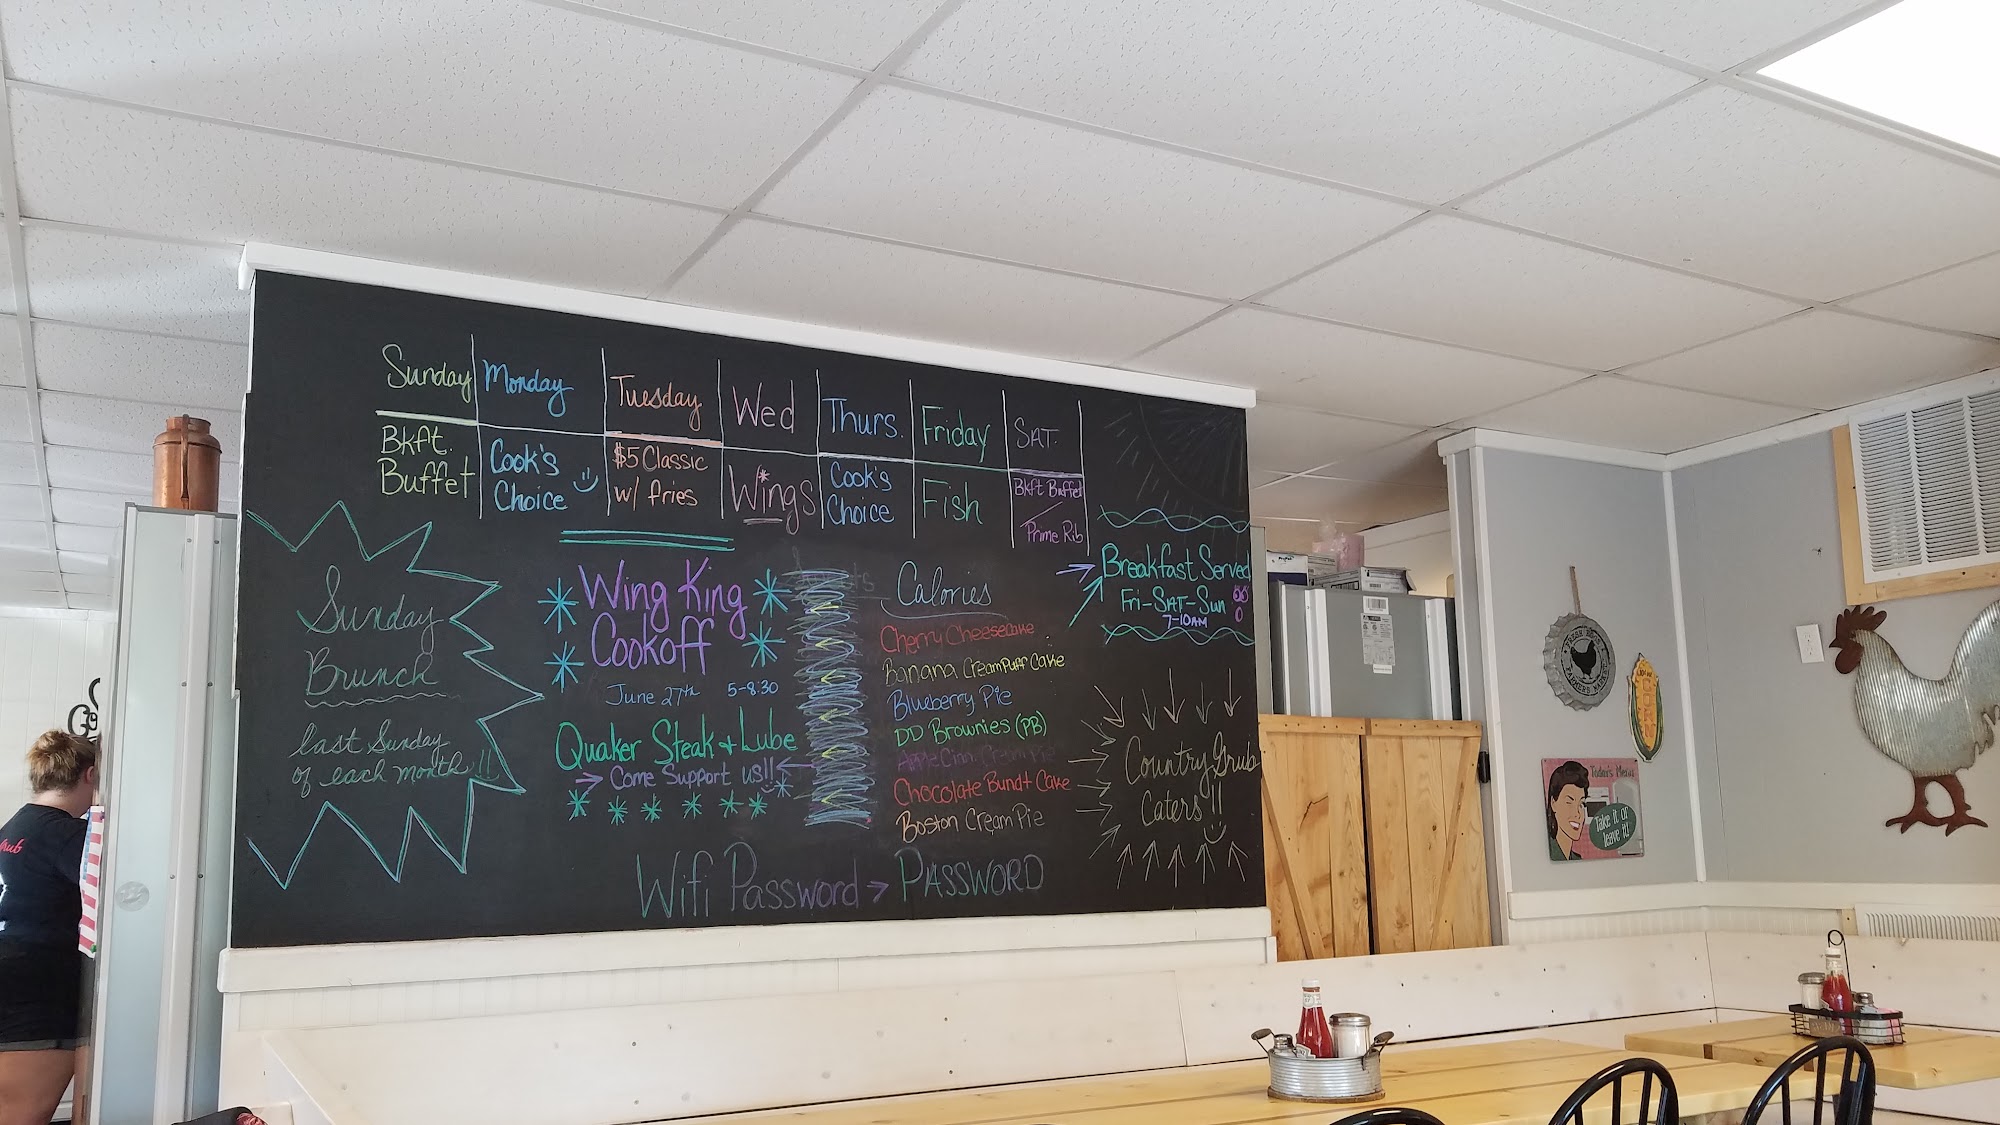 Sunday Monday Tuesday Wed Thurs. Friday SAT.
Bkft. Buffet
Cook's Choice
$5 Classic w/ fries
Wings
Cook's Choice
Fish
Bkft Buffet / Prime Rib
Sunday
Brunch
last Sunday
of each month!!
Wing King
Cookoff
June 27th 5-8:30
Quaker Steak + Lube
Come Support us!!
Calories
Cherry Cheesecake
Banana Creampuff Cake
Blueberry Pie
DD Brownies (PB)
Apple Cinn. Cream Pie
Chocolate Bundt Cake
Boston Cream Pie
Breakfast Served
Fri-SAT-Sun
7-10AM
Country Grub
Caters!!
Wifi Password → PASSWORD
Today's Menu
Take it or
leave it!